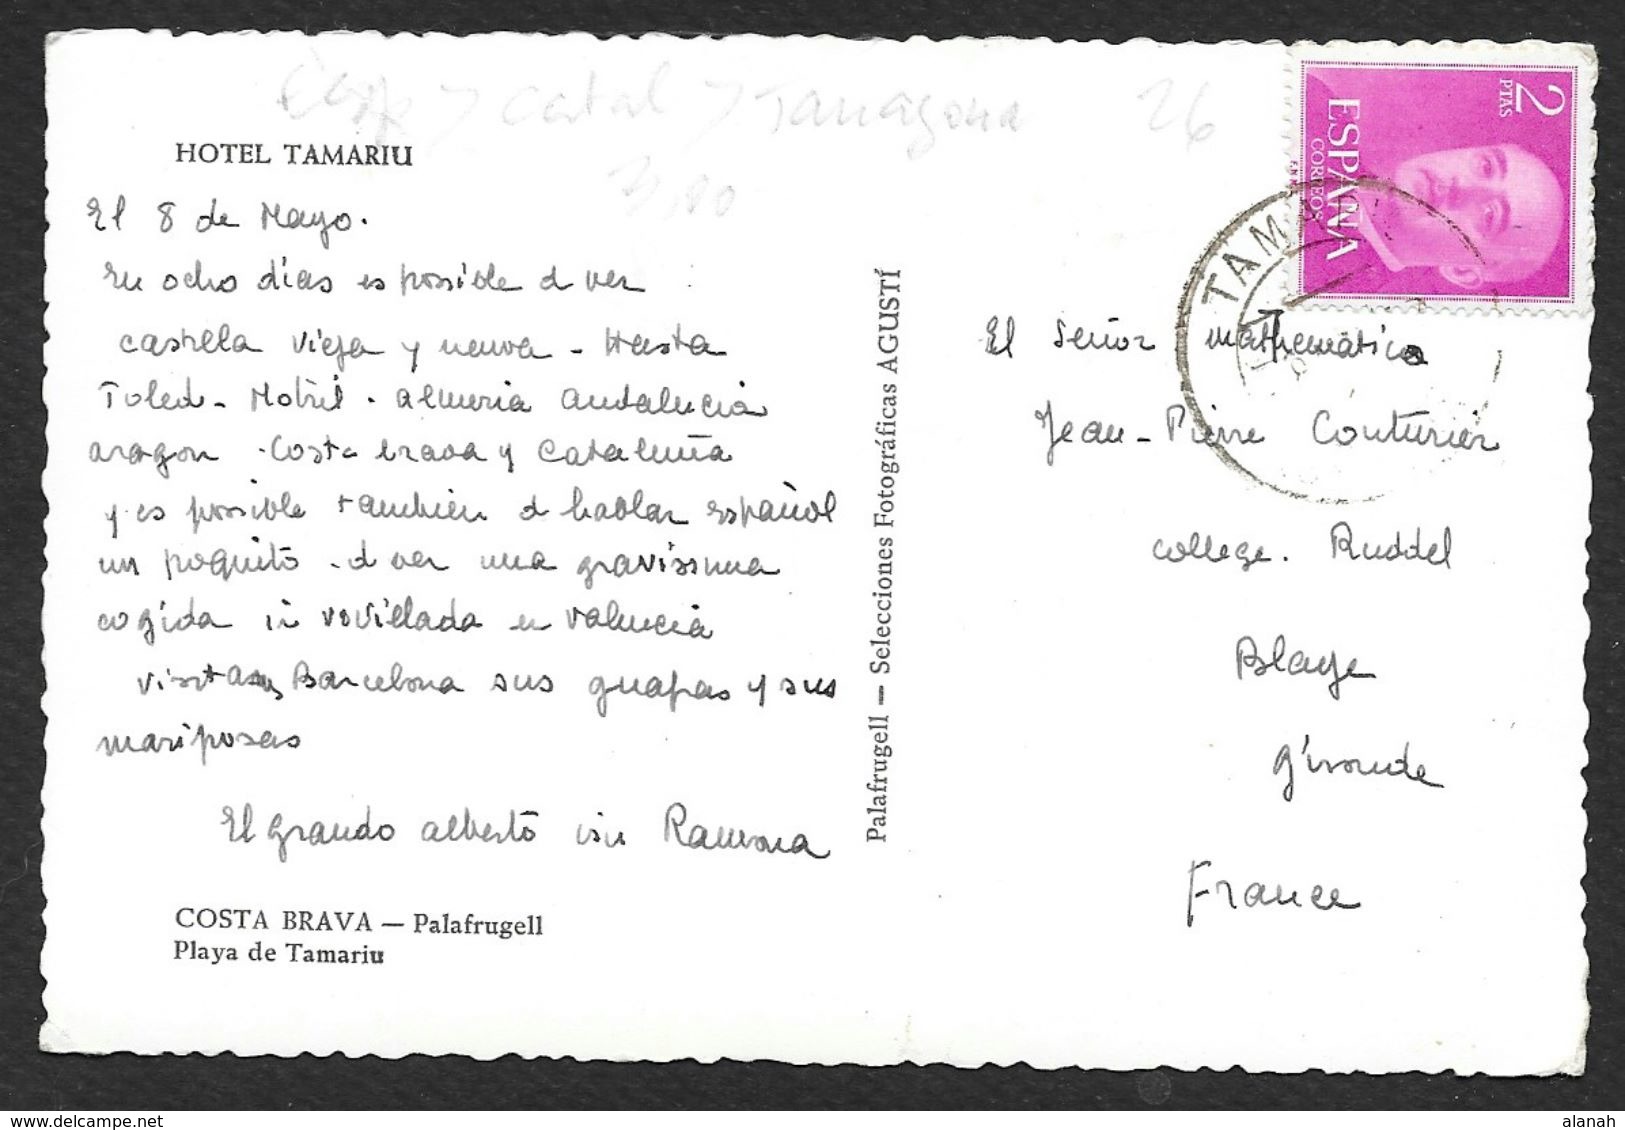 Catal > Tarragona 26
3,00
HOTEL TAMARIU
El 8 de Mayo.
En ocho dias es posible d ver
castella vieja y nueva - Hasta
Toledo - Motril - almeria andalucia
aragon - Costa brava y Cataluña
y es posible tambien d hablar español
un poquito - d ver una gravissima
cogida in novillada en Valencia
Barcelona sus guapas y sus
mariposas
El grando alberto con Ramona
COSTA BRAVA — Palafrugell
Playa de Tamariu
Palafrugell — Selecciones Fotográficas AGUSTÍ
2 PTAS
ESPAÑA
CORREOS
TAMA
El Señor mathematico
Jean-Pierre Couturier
college. Ruddel
Blaye
Gironde
France
alanah